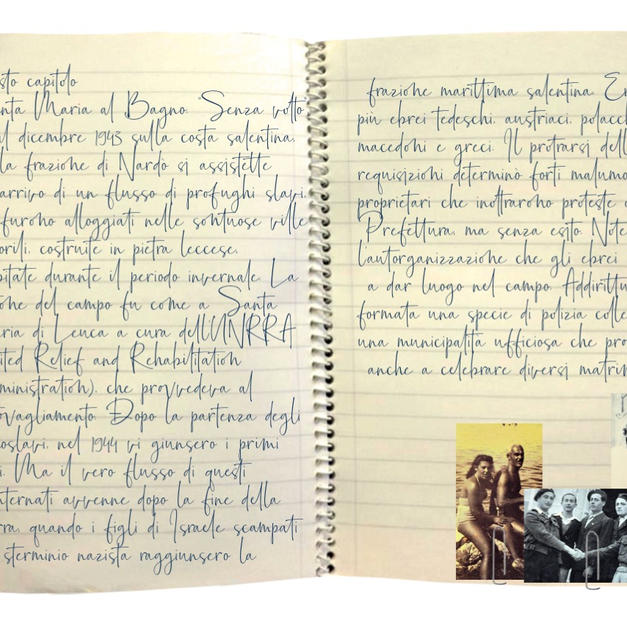 sto capitolo
nta Maria al Bagno. Senza volto
l dicembre 1943 sulla costa salentina.
la frazione di Nardò si assistette
arrivo di un flusso di profughi slavi.
furono alloggiati nelle sontuose ville
orili, costruite in pietra leccese.
bitate durante il periodo invernale. La
one del campo fu come a Santa
ria di Leuca a cura dell'UNRRA
ited Relief and Rehabilitation
ministration), che provvedeva al
ovagliamento. Dopo la partenza degli
oslavi, nel 1944 vi giunsero i primi
i. Ma il vero flusso di questi
nternati avvenne dopo la fine della
rra, quando i figli di Israele scampati
sterminio nazista raggiunsero la
frazione marittima salentina. Er
più ebrei tedeschi, austriaci, polacch
macedoni e greci. Il protrarsi dell
requisizioni determinò forti malumo
proprietari che inoltrarono proteste a
Prefettura, ma senza esito. Note
l'autorganizzazione che gli ebrei
a dar luogo nel campo. Addirittu
formata una specie di polizia colle
una municipalità ufficiosa che pro
anche a celebrare diversi matrim